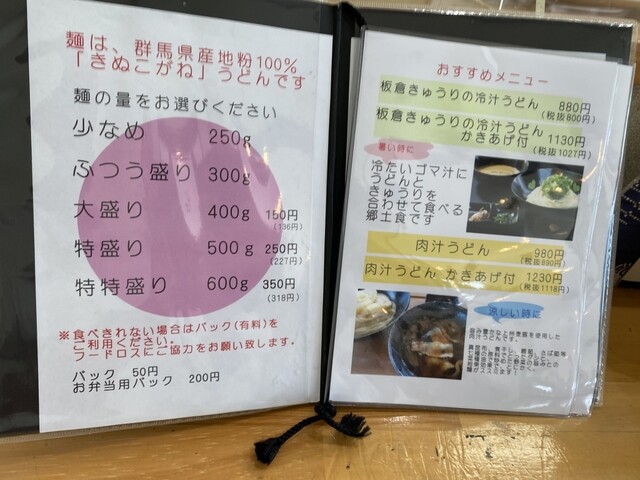 麺は、群馬県産地粉100%
「きぬこがね」うどんです
麺の量をお選びください
少なめ 250g
ふつう盛り 300g
大盛り 400g 150円
(136円)
特盛り 500g 250円
(227円)
特特盛り 600g 350円
(318円)
※食べきれない場合はパック(有料)を
ご利用ください。
フードロスにご協力をお願い致します。
パック 50円
お弁当用パック 200円
おすすめメニュー
板倉きゅうりの冷汁うどん 880円
(税抜800円)
板倉きゅうりの冷汁うどん
かきあげ付 1130円
(税抜1027円)
暑い時に
冷たいゴマ汁に
うどんと
きゅうりを
合わせて食べる
郷土食です
肉汁うどん 980円
(税抜890円)
肉汁うどん かきあげ付 1230円
(税抜1118円)
涼しい時に
肉汁うどんです。